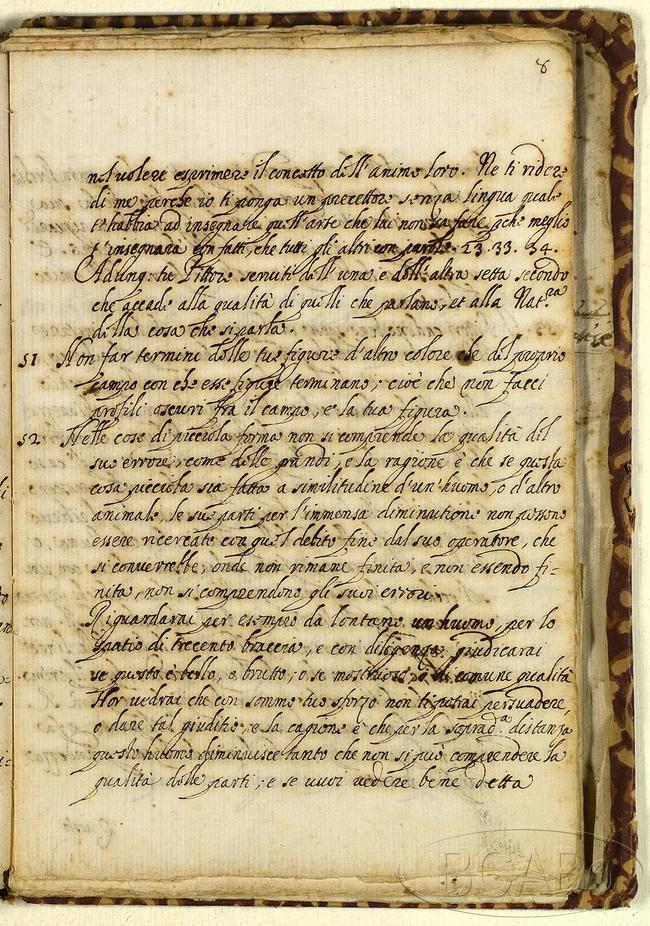 8
nel volere esprimere il concetto dell'animo loro. Ne ti ridere
di me perche io ti ponga un precettore senza lingua quale
t'habbia ad insegnare quell'arte che lui non sa fare, pche meglio
t'insegnarà con fatti, che tutti gli altri con parole. 23. 33. 34.
Adunq. tu Pittore serviti dell'una e dell'altra setta secondo
che accade alla qualità di quelli che parlano, et alla Nat.ra
della cosa che si parla.
51 Non far termini delle tue figure d'altro colore che del proprio
campo con che esse figure terminano; cioè che non facci
profili oscuri frà il campo, e la tua figura.
52 Nelle cose di picciola forma non si comprende la qualità del
suo errore, come delle grandi, e la ragione è che se questa
cosa picciola sia fatta a similitudine d'un'huomo, o d'altro
animale, le sue parti per l'immensa diminutione non possono
essere ricercate con quel debito fine dal suo operatore, che
si converrebbe, onde non rimane finita, e non essendo fi=
nita, non si comprendono gli suoi errori.
Riguardarai per esempio da lontano un huomo, per lo
spatio di trecento braccia, e con diligenza giudicarai
se questo è bello, o brutto, o se mostruoso, o di comune qualità
Hor vedrai che con sommo tuo sforzo non ti potrai persuadere,
o dare tal giuditio, e la cagione è che per la soprad.a distanza
questo huomo diminuisce tanto che non si può comprendere la
qualità delle parti; e se vuoi vedere bene detta
BCAB